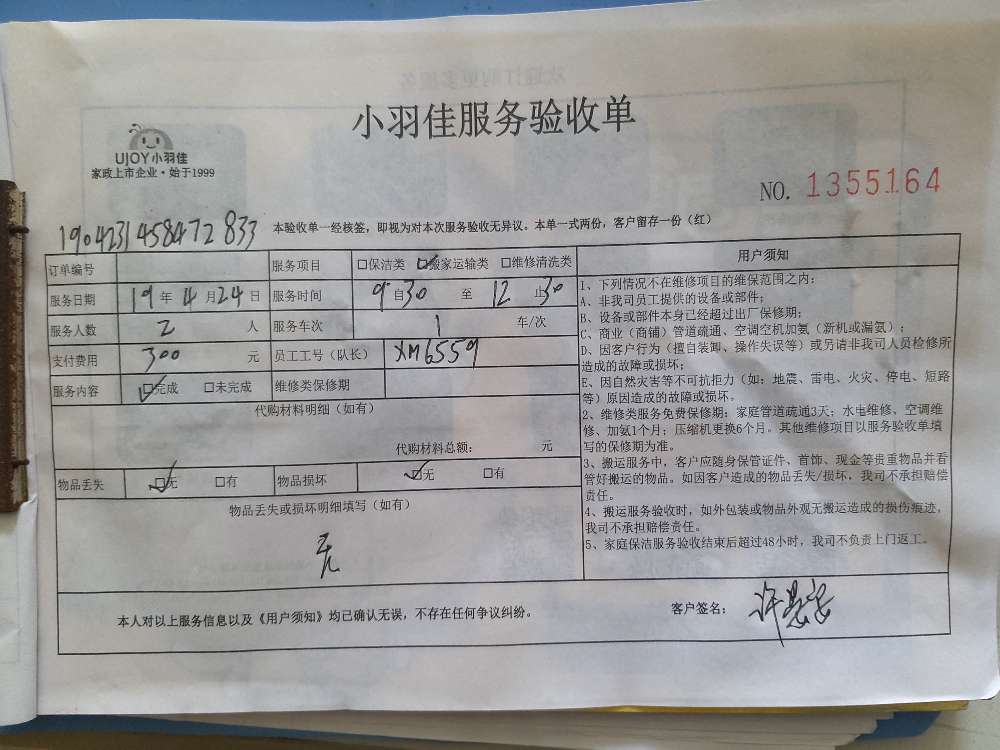 小羽佳服务验收单
UJOY小羽佳
家政上市企业·始于1999
NO. 1355164
1904231458472833
本验收单一经核签，即视为对本次服务验收无异议。本单一式两份，客户留存一份（红）
订单编号 服务项目 □保洁类 ☑搬家运输类 □维修清洗类
服务日期 19年4月24日 服务时间 9自30至12止30
服务人数 2人 服务车次 1车/次
支付费用 300元 员工工号（队长） XM6559
服务内容 ☑完成 □未完成 维修类保修期
代购材料明细（如有）
代购材料总额： 元
物品丢失 ☑无 □有 物品损坏 ☑无 □有
物品丢失或损坏明细填写（如有）
无
用户须知
1、下列情况不在维修项目的维保范围之内：
A、非我司员工提供的设备或部件；
B、设备或部件本身已经超过出厂保修期；
C、商业（商铺）管道疏通、空调空机加氨（新机或漏氨）；
D、因客户行为（擅自装卸、操作失误等）或另请非我司人员检修所
造成的故障或损坏；
E、因自然灾害等不可抗拒力（如：地震、雷电、火灾、停电、短路
等）原因造成的故障或损坏。
2、维修类服务免费保修期：家庭管道疏通3天；水电维修、空调维
修、加氨1个月；压缩机更换6个月。其他维修项目以服务验收单填
写的保修期为准。
3、搬运服务中，客户应随身保管证件、首饰、现金等贵重物品并看
管好搬运的物品。如因客户造成的物品丢失/损坏，我司不承担赔偿
责任。
4、搬运服务验收时，如外包装或物品外观无搬运造成的损伤痕迹，
我司不承担赔偿责任。
5、家庭保洁服务验收结束后超过48小时，我司不负责上门返工。
本人对以上服务信息以及《用户须知》均已确认无误，不存在任何争议纠纷。
客户签名：